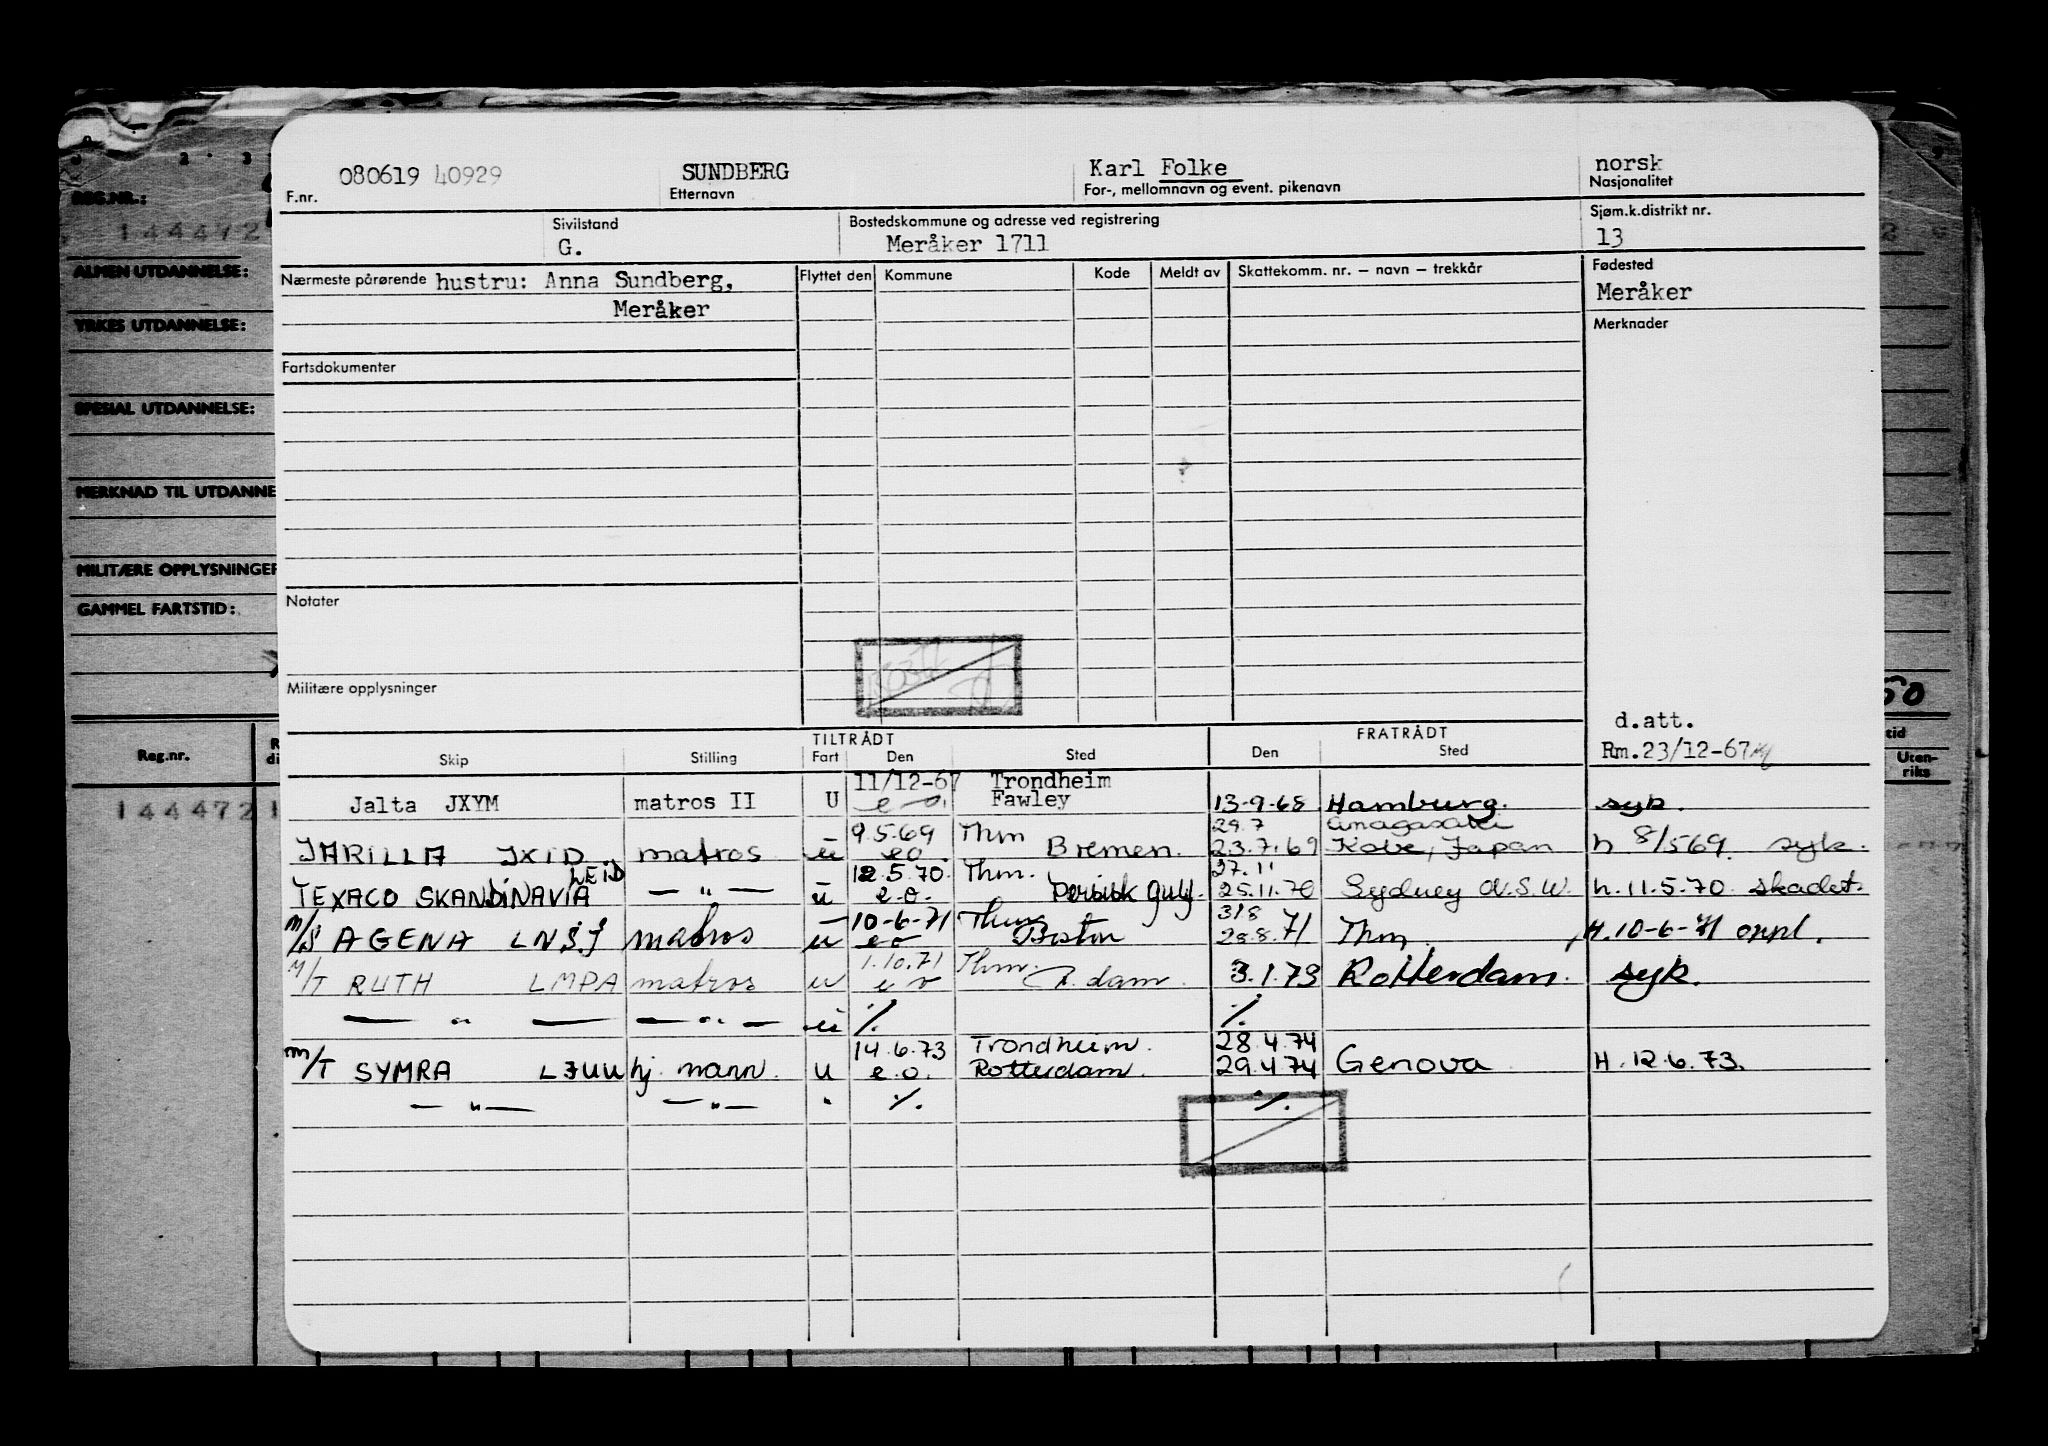 080619 40929 SUNDBERG Karl Folke norsk
F.nr. Etternavn For-, mellomnavn og event. pikenavn Nasjonalitet
Sivilstand Bostedskommune og adresse ved registrering Sjøm.k.distrikt nr.
G. Meråker 1711 13
Nærmeste pårørende hustru: Anna Sundberg, Flyttet den Kommune Kode Meldt av Skattekomm. nr. – navn – trekkår Fødested
Meråker Meråker
Merknader
Fartsdokumenter
Notater
Militære opplysninger
d.att.
TILTRÅDT FRATRÅDT
Skip Stilling Fart Den Sted Den Sted Rm.23/12-67
11/12-67 Trondheim
Jalta JXYM matros II U e o. Fawley 13-9-68 Hamburg. syk.
9.5.69 Thm 29.7 Amagasaki
JARILLA JXID matros u eo Bremen. 23.7.69 Kobe, Japan h 8/5 69. syk.
LEID 12.5.70. Thm. 27.11
TEXACO SKANDINAVIA — " — u e.o. Persisk Gulf. 25.11.70 Sydney N.S.W. h.11.5.70 skadet.
10-6-71 Thm 31/8
M/S AGENA LNSJ matros u eo Boston 28.8.71 Thm. H.10-6-71 oppl.
1.10.71 Thm.
M/T RUTH LMPA matros u e o R.dam 3.1.73 Rotterdam. syk.
— " — — " — u ./. ./.
14.6.73 Trondheim. 28.4.74
M/T SYMRA LJUU hj. mann. u e.o. Rotterdam. 29.4.74 Genova H.12.6.73.
— " — — " — " ./. ./.
REG.NR.:
144472
ALMEN UTDANNELSE:
YRKES UTDANNELSE:
SPESIAL UTDANNELSE:
MERKNAD TIL UTDANNE
MILITÆRE OPPLYSNINGER
GAMMEL FARTSTID:
50
Reg.nr. tid
Uten-
riks
144472